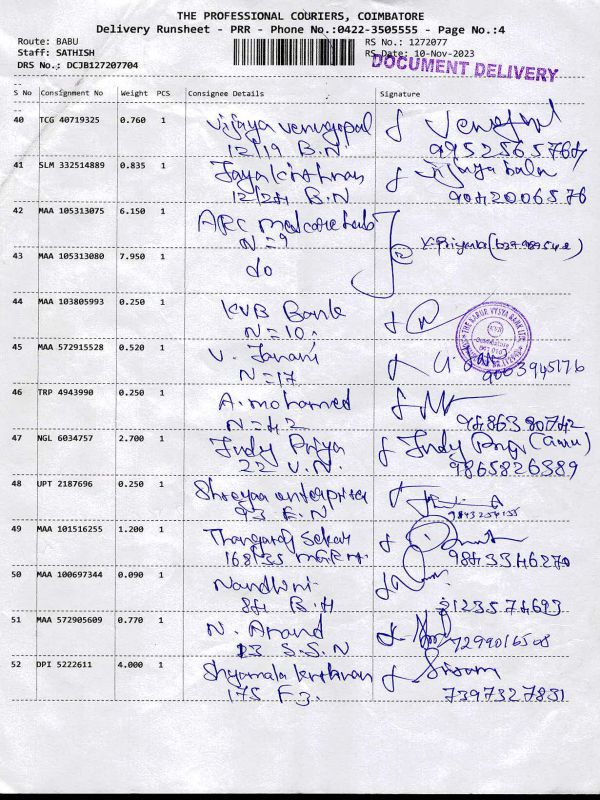 THE PROFESSIONAL COURIERS, COIMBATORE
Delivery Runsheet - PRR - Phone No.:0422-3505555 - Page No.:4
Route: BABU
RS No.: 1272077
Staff: SATHISH
RS Date: 10-Nov-2023
DRS No.: DCJB127207704
DOCUMENT DELIVERY
S No Consignment No Weight PCS Consignee Details Signature
40 TCG 40719325 0.760 1 Vijaya venugopal
12/19 B.N
41 SLM 332514889 0.835 1 Jayakrishnan
12/24 B.N 9042006576
42 MAA 105313075 6.150 1 ARC
N = 9
43 MAA 105313080 7.950 1 do
44 MAA 103805993 0.250 1 KVB Bank
N = 10
THE KARUR VYSYA BANK LTD.
45 MAA 572915528 0.520 1 V. Janani
N = 17 9003945176
46 TRP 4943990 0.250 1 A. mohamed
N = 42 9486380742
47 NGL 6034757 2.700 1 Judy Priya Judy
22 V.N. 9865826389
48 UPT 2187696 0.250 1 Shreyaa enterprises
93 E.N
49 MAA 101516255 1.200 1 Thangaraj Sekar
168/35
50 MAA 100697344 0.090 1 Nandhini
84 B.H
51 MAA 572905609 0.770 1 N. Anand
23 S.S.N 7299016508
52 DPI 5222611 4.000 1 Shyamala krishnan
175 F3. 7397327831